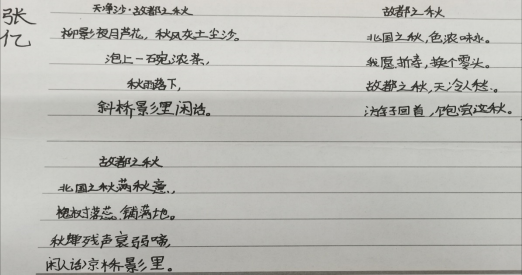 张亿
天净沙·故都之秋
柳影夜月芦花，秋风灰土尘沙。
泡上一碗浓茶，
秋雨落下，
斜桥影里闲话。
故都之秋
北国之秋，色浓味永。
我愿折寿，换个零头。
故都之秋，天冷人愁。
游子回首，饱尝这秋。
故都之秋
北国之秋满秋意，
槐树落蕊铺满地。
秋蝉残声衰弱啼，
闲人话凉桥影里。